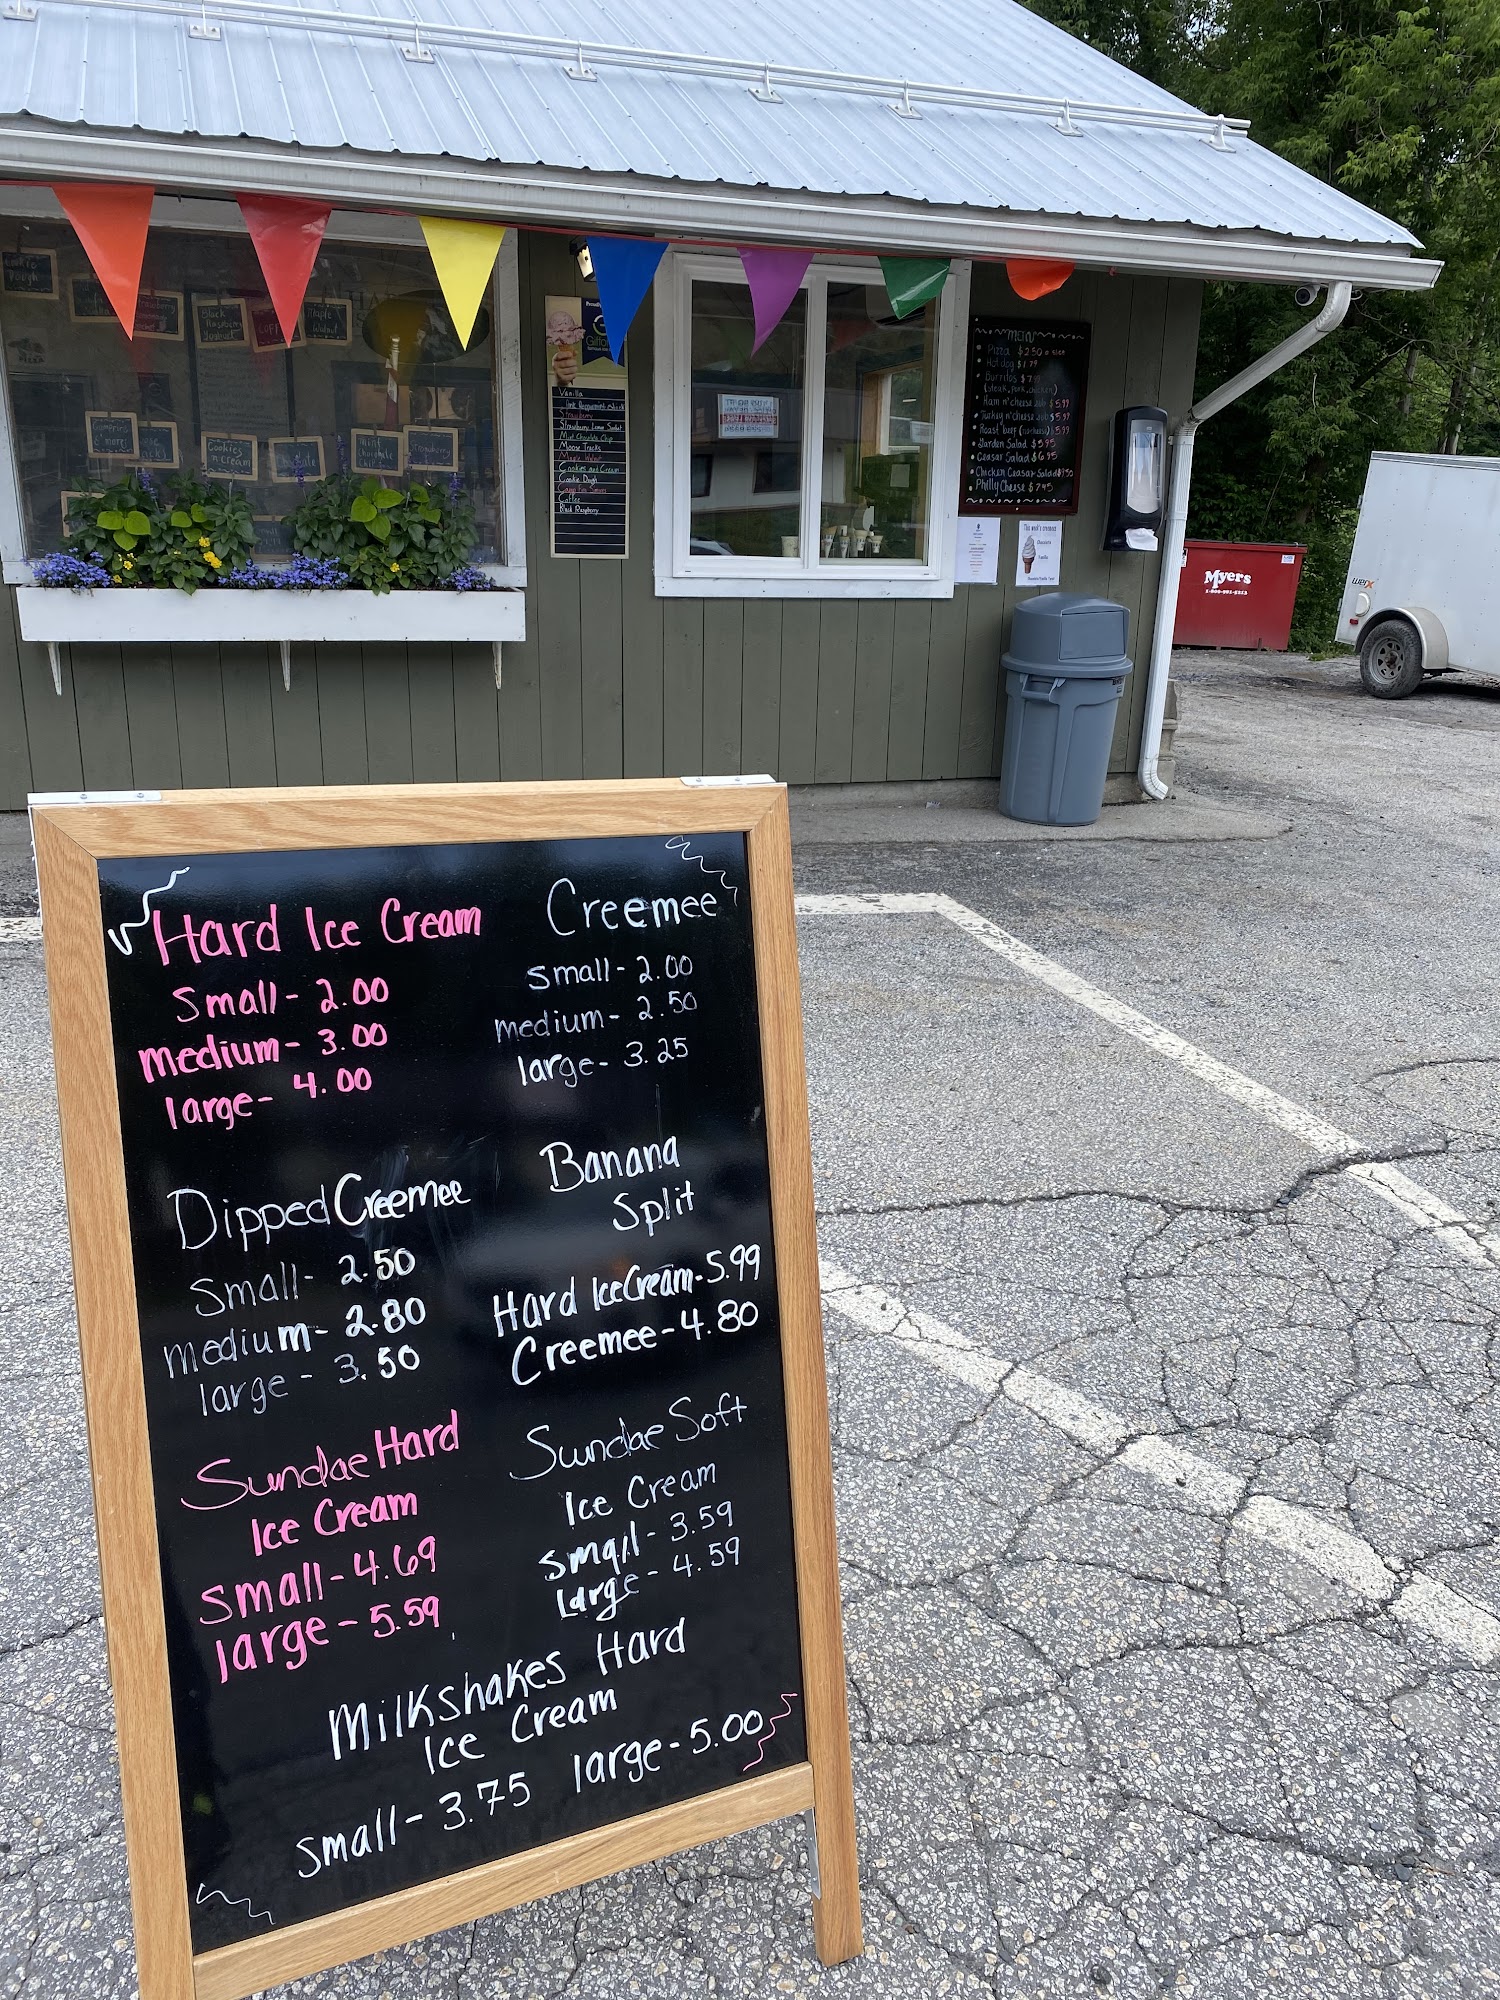 Hard Ice Cream
small - 2.00
medium - 3.00
large - 4.00
Creemee
small - 2.00
medium - 2.50
large - 3.25
Dipped Creemee
small - 2.50
medium - 2.80
large - 3.50
Banana
Split
Hard Ice Cream - 5.99
Creemee - 4.80
Sundae Hard
Ice Cream
small - 4.69
large - 5.59
Sundae Soft
Ice Cream
small - 3.59
large - 4.59
Milkshakes Hard
Ice Cream
small - 3.75 large - 5.00
Black
Raspberry
Maple
Walnut
Cookies
n'cream
mint
chocolate
chip
Vanilla
Strawberry
Mint Chocolate Chip
Moose Tracks
Maple Walnut
Cookies and Cream
Cookie Dough
Coffee
Black Raspberry
MENU
Pizza $2.50 a slice
Hot dog $1.79
Burritos $7
(steak, pork, chicken)
Ham n' cheese sub $5.99
Turkey n' cheese sub $5.99
Roast beef $5.99
Garden Salad $5.95
Ceasar Salad $6.95
Chicken Ceasar Salad
Philly Cheese $7.45
This week's creemees
Chocolate
Vanilla
Myers